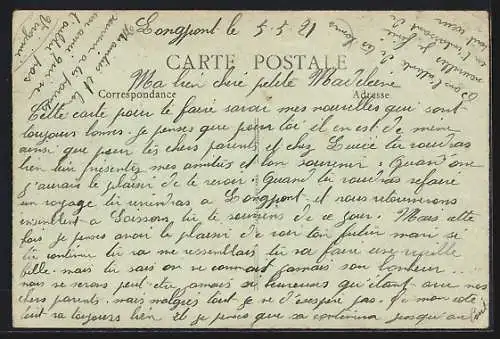 Longpont le 5-5-21
CARTE POSTALE
Ma bien chère petite Madeleine
Correspondance Adresse
Cette carte pour te faire savoir mes nouvelles qui sont
toujours bonnes. je penses que pour toi il en est de même
ainsi que pour tes chers parents et chez Lucie tu voudras
bien leur présentes mes amitiés et bon souvenir : Quand
j'aurais le plaisir de te revoir : Quand tu voudras refaire
un voyage tu viendras a Longpont et nous retournerons
ensemble a Soissons tu te souviens de ce jour. Mais cette
fois je penses avoir le plaisir de voir ton futur mari si
tu continue tu va me ressembles tu va faire une vieille
fille. mais tu sais on ne connait jamais son bonheur...
nous ne serons peut etre jamais si heureuses qu'étant avec nos
chers parents. mais malgrés tout je ne désespère pas. De mon coté
tout va toujours bien et je penses que sa continura jusqu'au